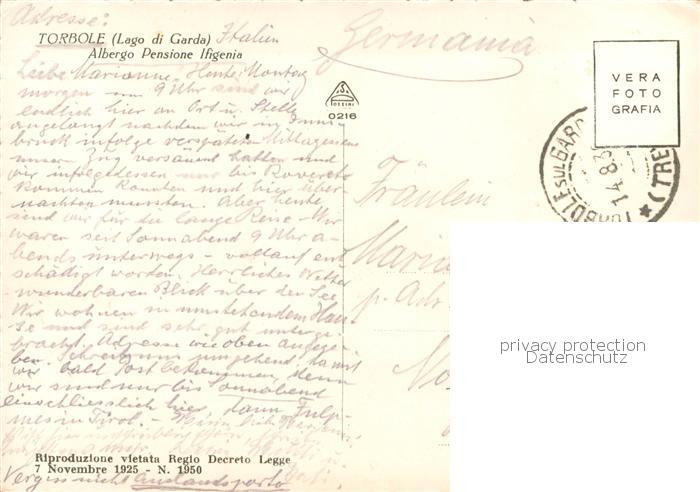 Adresse:
TORBOLE (Lago di Garda) Italien
Albergo Pensione Ifigenia
Germania
Liebe Marianne! Heute, Montag
morgen um 9 Uhr sind wir
endlich hier an Ort u. Stelle
angelangt nachdem wir in Inns-
bruck infolge verspäteten Mittagessens
unser Zug versäumt hatten und
wir infolgedessen nur bis Rovereto
kommen konnten und hier über-
nachten mussten. Aber heute
sind wir für die lange Reise - Wir
waren seit Sonnabend 9 Uhr a-
bends unterwegs - vollauf ent-
schädigt worden. Herrliches Wetter
wunderbaren Blick über den See
Wir wohnen in umstehendem Hau-
se und sind sehr gut unterge-
bracht. Adresse wie oben angege-
ben. Schreib nun umgehend, damit
wir bald Post bekommen, denn
wir sind nur bis Sonnabend
einschliesslich hier, dann Fulp-
mes in Tirol.
Riproduzione vietata Regio Decreto Legge
7 Novembre 1925 - N. 1950
Vergiss nicht Auslandsporto
0216
VERA
FOTO
GRAFIA
TORBOLE SUL GARDA
(TRE
14.8.3
Fräulein
p. Adr
privacy protection
Datenschutz